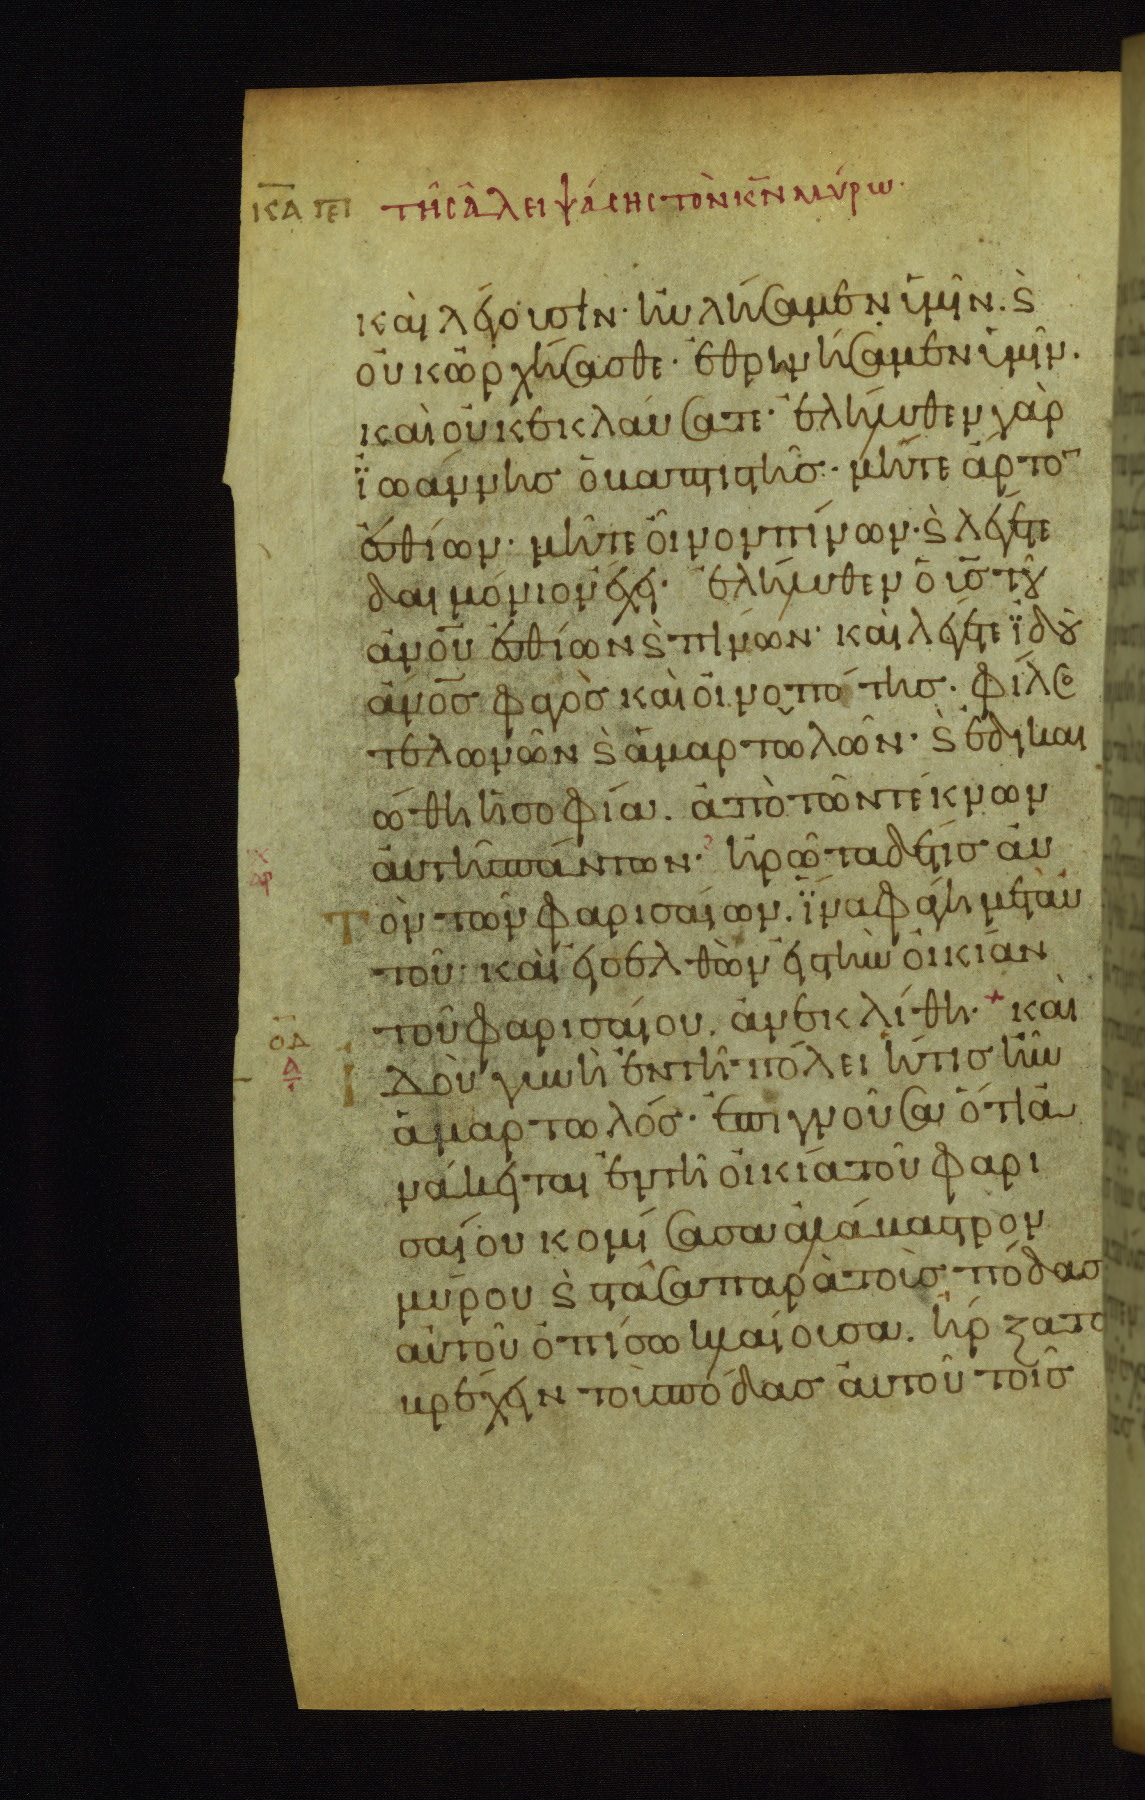 κ̅α̅ πε̅ι̅ τῆς ἀλειψάσης τὸν κ̅ν̅ μύρω·
καὶ λέγουσιν· ηὐλήσαμεν ὑμῖν. ϗ
οὐκ ὠρχήσασθε· ἐθρηνήσαμεν ὑμῖν.
καὶ οὐκ ἐκλαύσατε· ἐλήλυθεν γὰρ
ϊωάννης ὁ βαπτιστῆς· μήτε ἄρτο̅
ἐσθίων· μήτε οἶνον πίνων· ϗ λέγετε
δαιμόνιον ἔχει· ἐλήλυθεν ὁ υ̅ς̅ τοῦ
ἀν̅ο̅υ̅ ἐσθίων ϗ πίνων· καὶ λέγετε ϊδοὺ
ἄν̅ο̅ς̅ φάγος καὶ οἰνοπότης· φίλος
τελωνῶν ϗ ἁμαρτωλῶν· ϗ ἐδικαι
ώθη ἡ σοφία. ἀπὸ τῶν τέκνων
αὐτῆς πάντων· ἠρῶτα δέ τις αὐ
τὸν τῶν φαρισαίων. ϊνα φάγη μετ' αὐ
τοῦ· καὶ εἰσελθὼν εἰς τὴν οἰκίαν
τοῦ φαρισαίου. ἀνεκλίθη· καὶ
ο̅δ̅ δ̅ ἰδοὺ γυνὴ ἐν τῆ πόλει ἥτις ἦν
ἁμαρτωλός· ἐπιγνοῦσα ὅτι ἀ
νάκειται ἐν τῆ οἰκία τοῦ φαρι
σαίου κομίσασα ἀλάβαστρον
μύρου ϗ στᾶσα παρὰ τοὺς πόδας
αὐτοῦ ὀπίσω κλαίουσα. ἤρξατο
βρέχειν τοὺς πόδας αὐτοῦ τοῖς